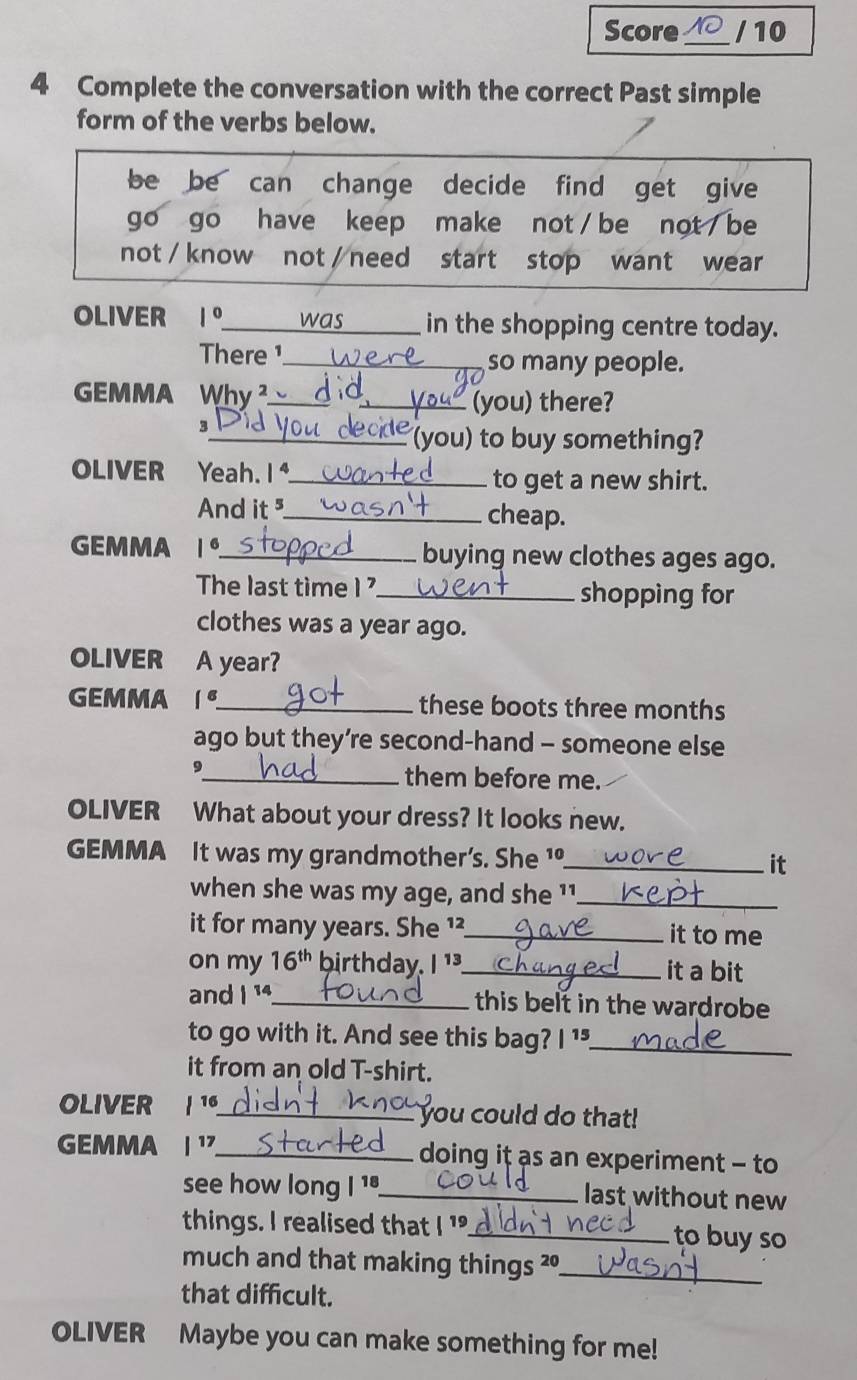 Score 10 / 10
4 Complete the conversation with the correct Past simple
form of the verbs below.
be be can change decide find get give
go go have keep make not / be not / be
not / know not / need start stop want wear
OLIVER I ⁰ was in the shopping centre today.
There ¹ were so many people.
GEMMA Why ² did you go (you) there?
³ Did you decide (you) to buy something?
OLIVER Yeah. I ⁴ wanted to get a new shirt.
And it ⁵ wasn't cheap.
GEMMA I ⁶ stopped buying new clothes ages ago.
The last time I ⁷ went shopping for
clothes was a year ago.
OLIVER A year?
GEMMA I ⁸ got these boots three months
ago but they're second-hand – someone else
⁹ had them before me.
OLIVER What about your dress? It looks new.
GEMMA It was my grandmother's. She ¹⁰ wore it
when she was my age, and she ¹¹ kept
it for many years. She ¹² gave it to me
on my 16th birthday. I ¹³ changed it a bit
and I ¹⁴ found this belt in the wardrobe
to go with it. And see this bag? I ¹⁵ made
it from an old T-shirt.
OLIVER I ¹⁶ didn't know you could do that!
GEMMA I ¹⁷ started doing it as an experiment – to
see how long I ¹⁸ could last without new
things. I realised that I ¹⁹ didn't need to buy so
much and that making things ²⁰ wasn't
that difficult.
OLIVER Maybe you can make something for me!